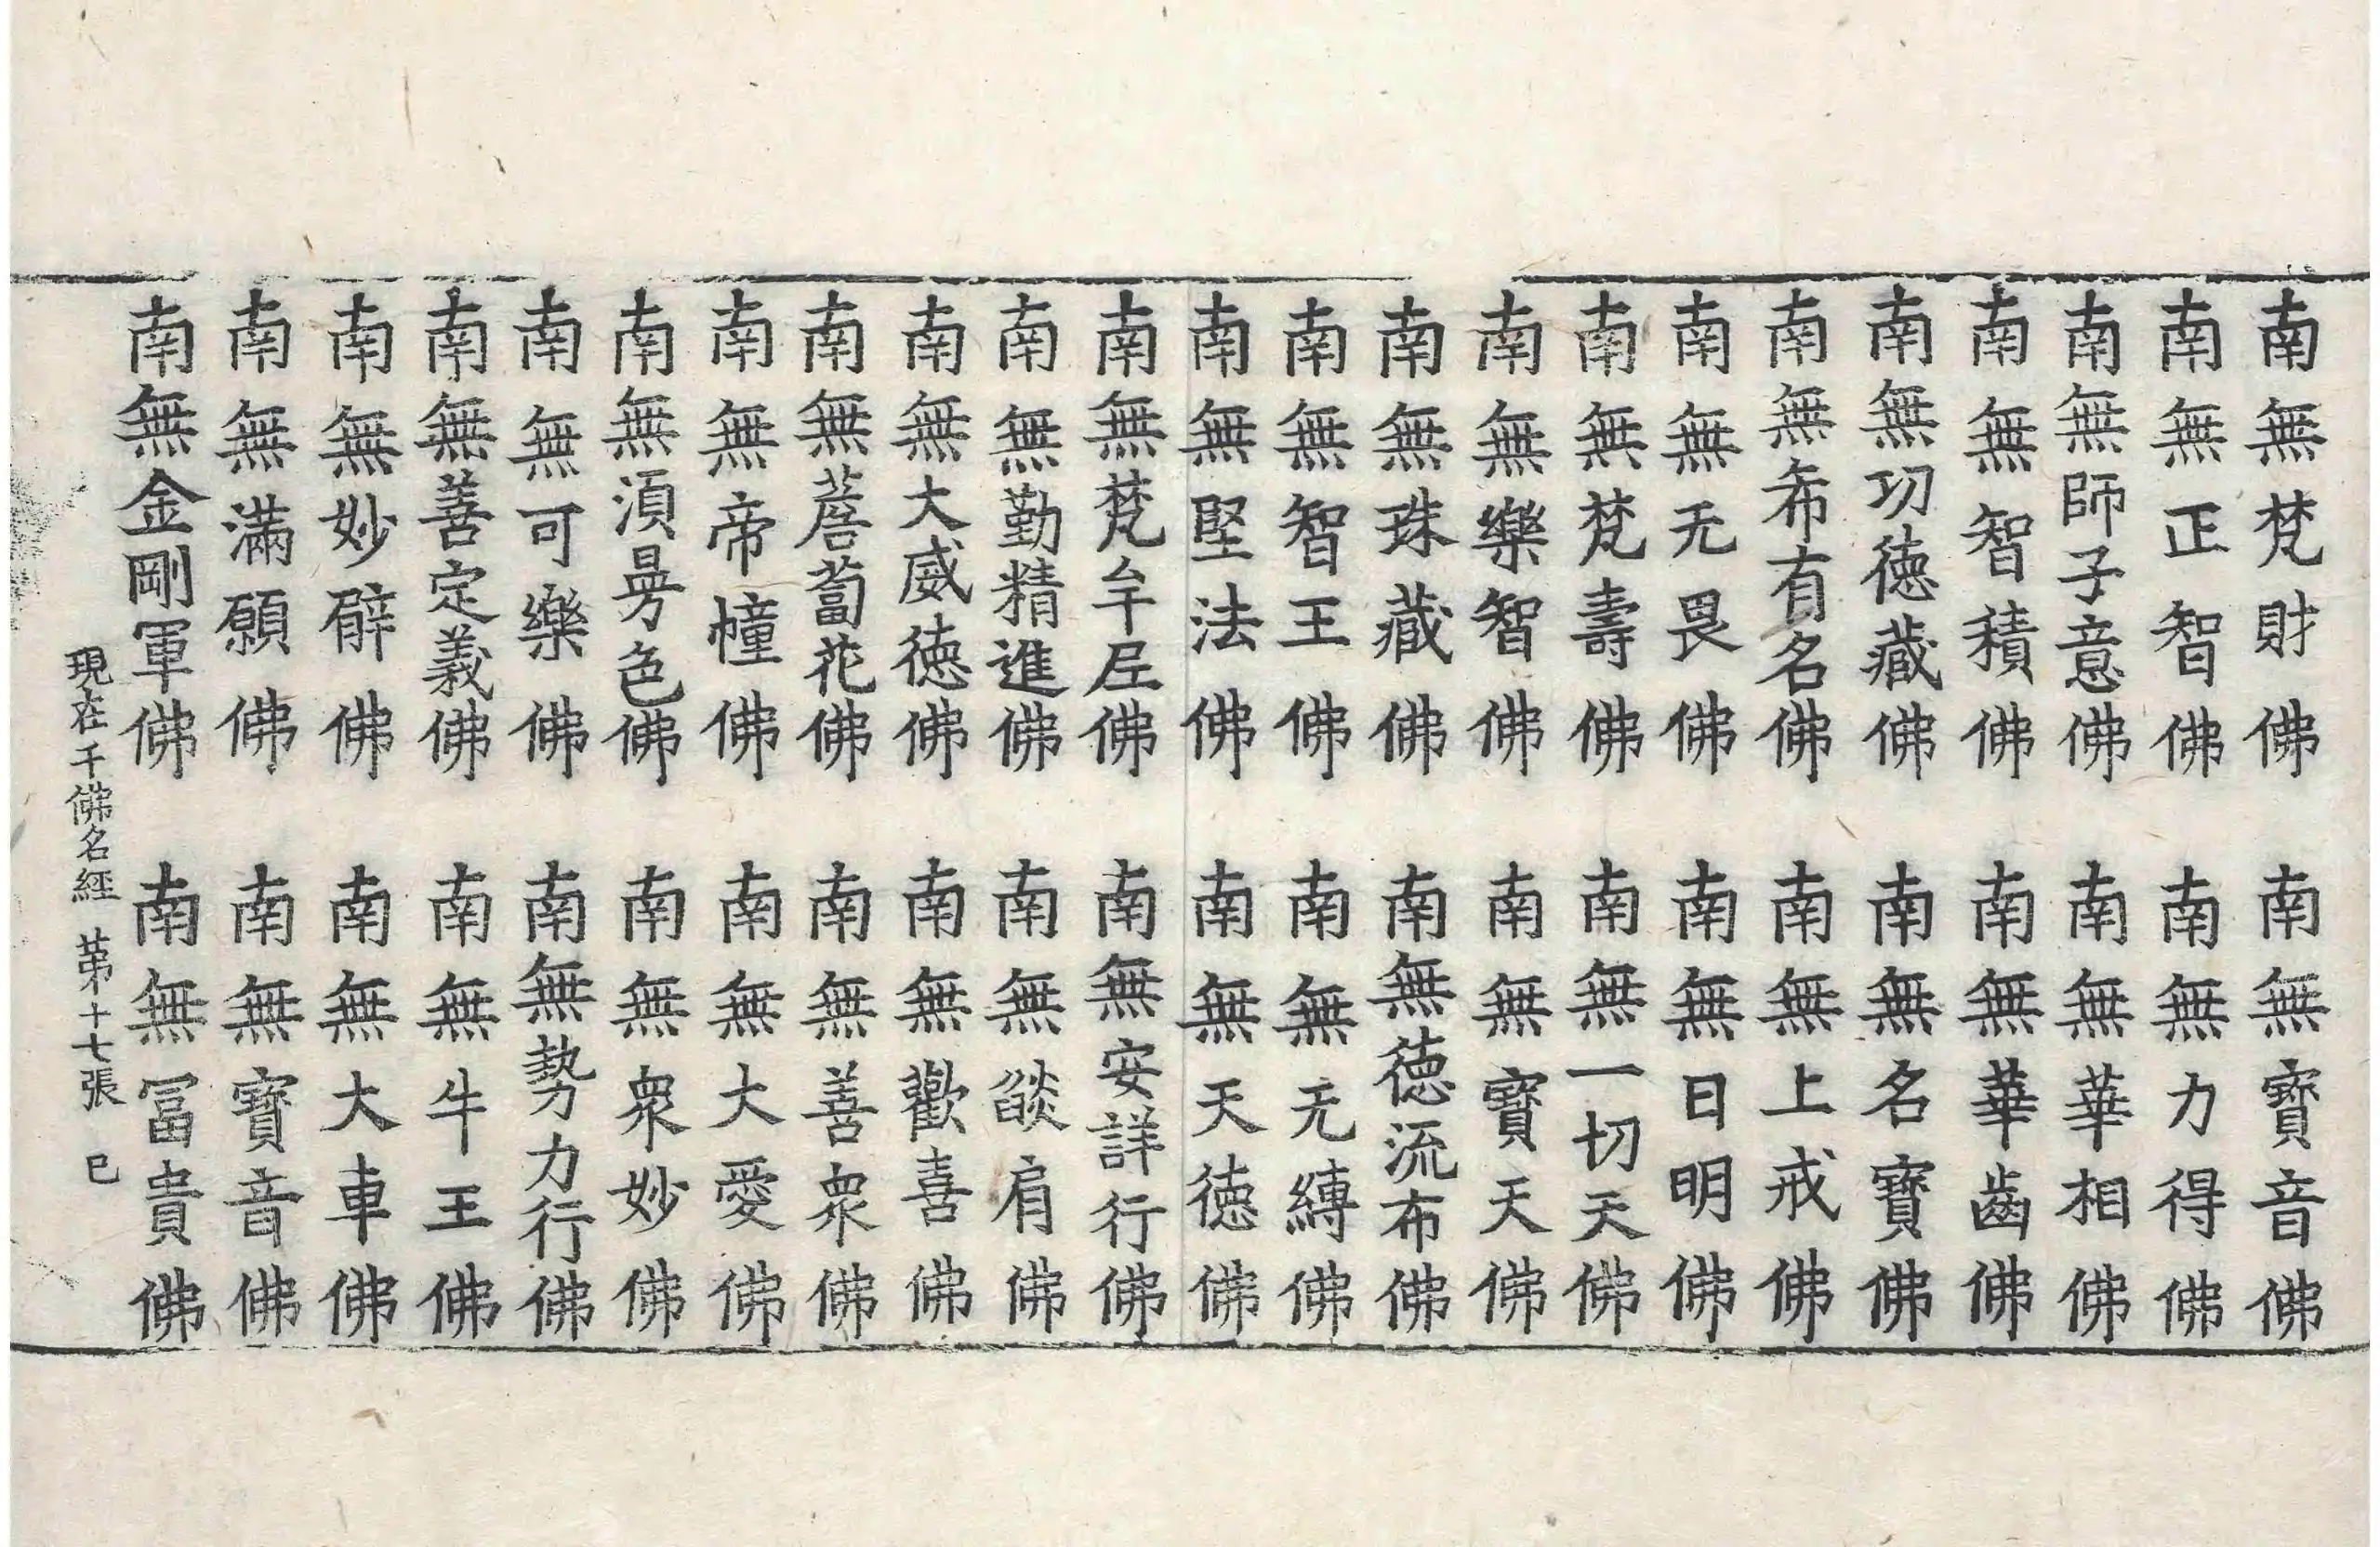 南無梵財佛 南無寶音佛
南無正智佛 南無力得佛
南無師子意佛 南無華相佛
南無智積佛 南無華齒佛
南無功德藏佛 南無名寶佛
南無希有名佛 南無上戒佛
南無无畏佛 南無日明佛
南無梵壽佛 南無一切天佛
南無樂智佛 南無寶天佛
南無珠藏佛 南無德流布佛
南無智王佛 南無无縛佛
南無堅法佛 南無天德佛
南無梵牟𡰱佛 南無安詳行佛
南無勤精進佛 南無𦦨肩佛
南無大威德佛 南無歡喜佛
南無薝蔔花佛 南無善衆佛
南無帝幢佛 南無大愛佛
南無湏曼色佛 南無衆妙佛
南無可樂佛 南無勢力行佛
南無善定義佛 南無牛王佛
南無妙臂佛 南無大車佛
南無滿願佛 南無寶音佛
南無金剛軍佛 南無冨貴佛
現在千佛名經 第十七張 巳